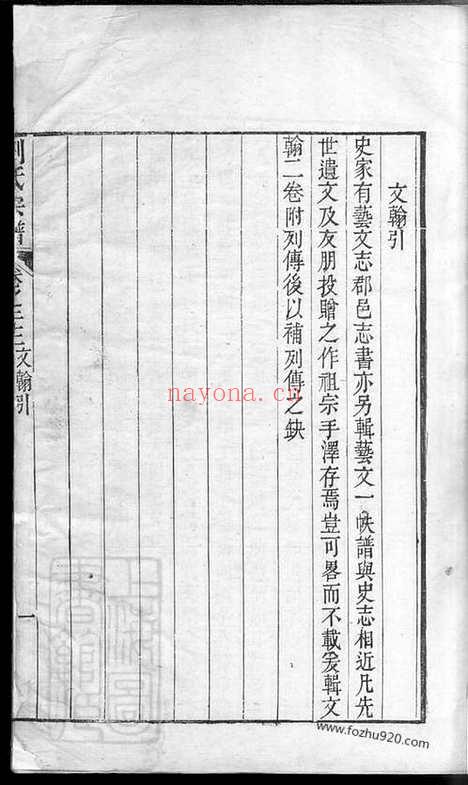 文翰引
史家有藝文志郡邑志書亦另輯藝文一帙譜與史志相近凡先
世遺文及友朋投贈之作祖宗手澤存焉豈可畧而不載爰輯文
翰二卷附列傳後以補列傳之缺
劉氏宗譜 卷之三 文翰引 一
nayona.cn
www.fozhu920.com